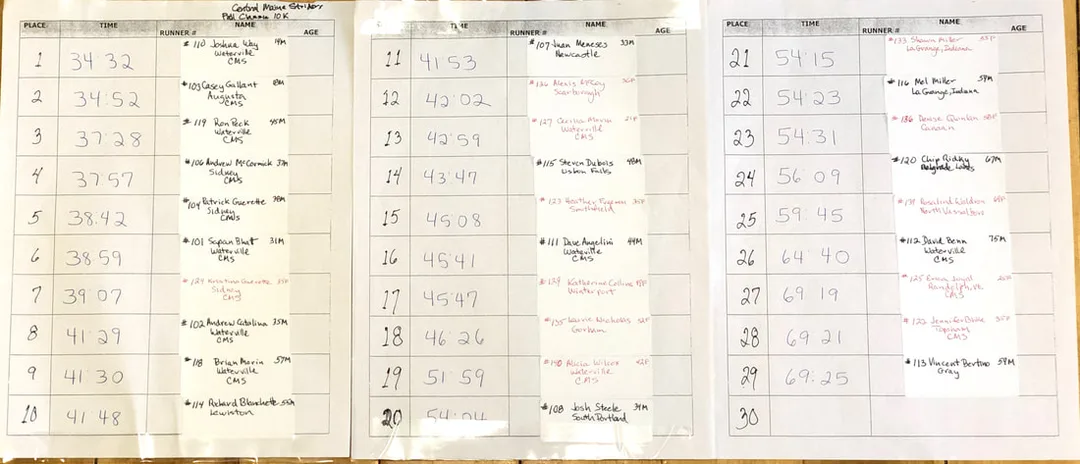 Central Maine Striders
10K
PLACE TIME RUNNER # NAME AGE
1 34:32 #110 Joshua Way 19M
Waterville
CMS
2 34:52 #103 Casey Gallant
Augusta
CMS
3 37:28 #119 Ron Peck 45M
Waterville
CMS
4 37:57 #106 Andrew McCormick 37M
Sidney
CMS
5 38:42 #104 Patrick Guerette 38M
Sidney
CMS
6 38:59 #101 Sapan Bhatt 31M
Waterville
CMS
7 39:07 #129 Kristina Guerette
Sidney
CMS
8 41:29 #102 Andrew Catalina 35M
Waterville
CMS
9 41:30 #118 Brian Morin 57M
Waterville
CMS
10 41:48 #114 Richard Blanchette
Lewiston
TIME NAME
RUNNER # AGE
11 41:53 #107 Juan Meneses 33M
Newcastle
12 42:02 Alexis
Scarborough
13 42:59 #127 Cecilia Morin 21F
Waterville
CMS
14 43:47 #115 Steven Dubois 48M
Lisbon Falls
15 45:08 #123 Heather
16 45:41 #111 Dave Angelini 49M
Waterville
CMS
17 45:47 #124 Katherine Collins
Winterport
18 46:26 #135 Laurie Nicholas 52F
Gorham
19 51:59 #140 Alicia Wilcox 42F
Waterville
CMS
20 54:04 #108 Josh Steele 34M
South Portland
PLACE TIME RUNNER # NAME AGE
21 54:15 #133 Shawn Miller
LaGrange, Indiana
22 54:23 #116 Mel Miller 59M
LaGrange, Indiana
23 54:31 #136 Denise Quinlan
Canaan
24 56:09 #120 Chip Ridky 67M
Belgrade Lakes
25 59:45 Rosalind Waldron
North Vassalboro
26 64:40 #112 David Benn 75M
Waterville
CMS
27 69:19 #125 Emma
Randolph, VT
CMS
28 69:21 #122 Jennifer
Topsham
CMS
29 69:25 #113 Vincent Bertino 59M
Gray
30